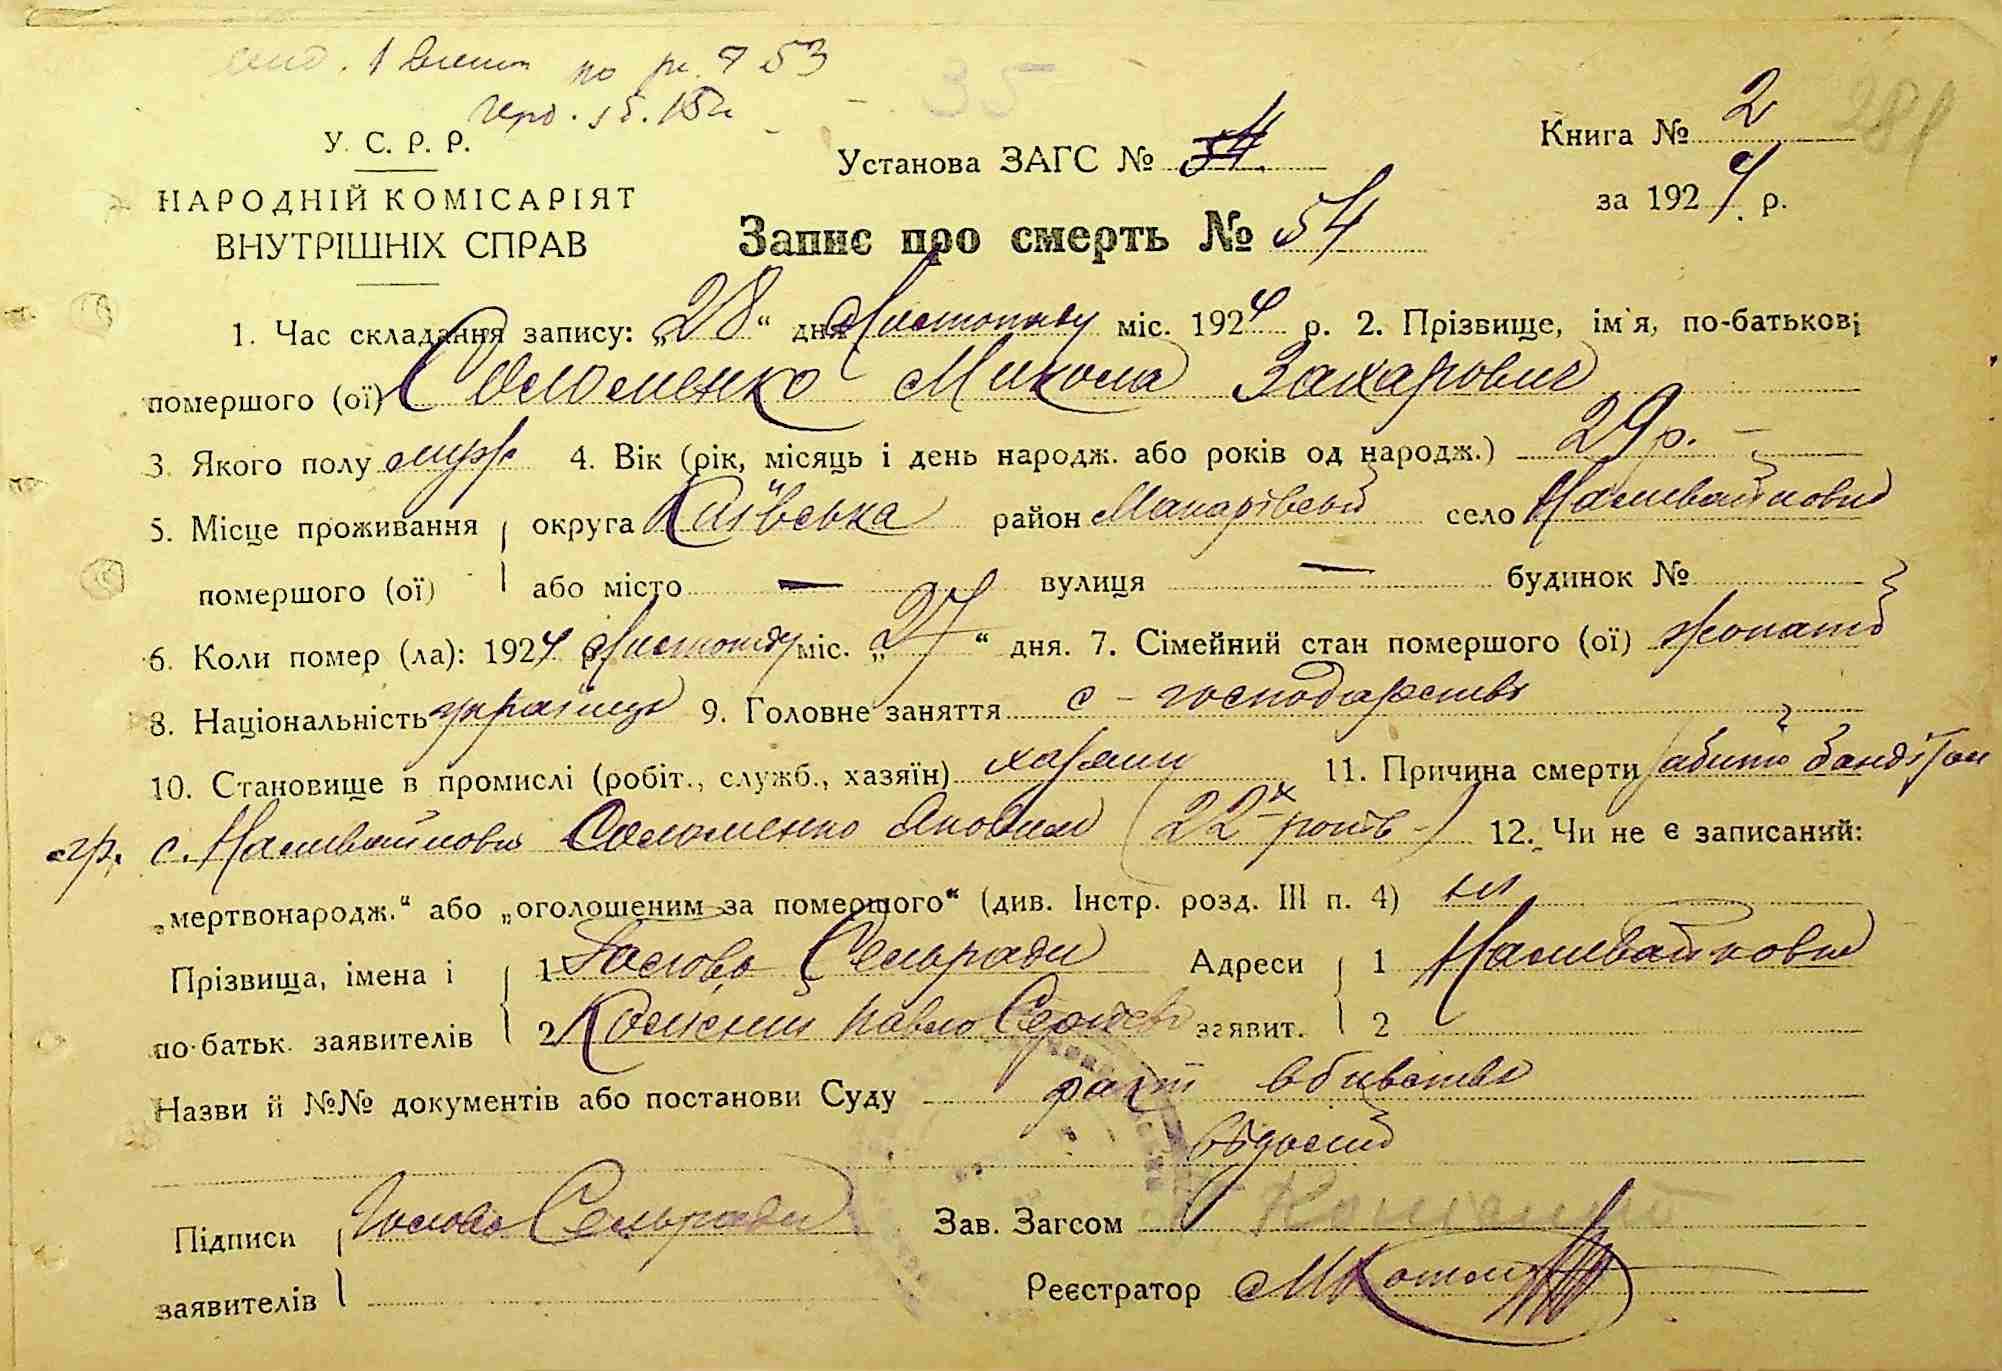 по 53
35
281
У. С. Р. Р.
НАРОДНІЙ КОМІСАРІЯТ
ВНУТРІШНІХ СПРАВ
Установа ЗАГС №
Книга № 2
за 1924 р.
Запис про смерть № 54
1. Час складання запису: „28“ дня Листопаду міс. 1924 р. 2. Прізвище, ім'я, по-батькові
помершого (ої) Соломенко Микола Захарович
3. Якого полу муж 4. Вік (рік, місяць і день народж. або років од народж.) 29 р. —
5. Місце проживання округа Київська район Макарівський село Наливайковка
помершого (ої) або місто — вулиця — будинок №
6. Коли помер (ла): 1924 р. Листопаду міс. „27“ дня. 7. Сімейний стан помершого (ої) жонатий
8. Національність українець 9. Головне заняття с-господарство
10. Становище в промислі (робіт., служб., хазяїн) хазяин 11. Причина смерти
гр. с. Наливайковка Соломенко (22-х років) 12. Чи не є записаний:
„мертвонародж.“ або „оголошеним за помершого“ (див. Інстр. розд. III п. 4) ні
Прізвища, імена і 1 Голова Сельради Адреси 1 Наливайковка
по-батьк. заявителів 2 Павло заявит. 2
Назви й №№ документів або постанови Суду факт вбивства
відомий
Підписи Голова Сельради Зав. Загсом
заявителів Реєстратор